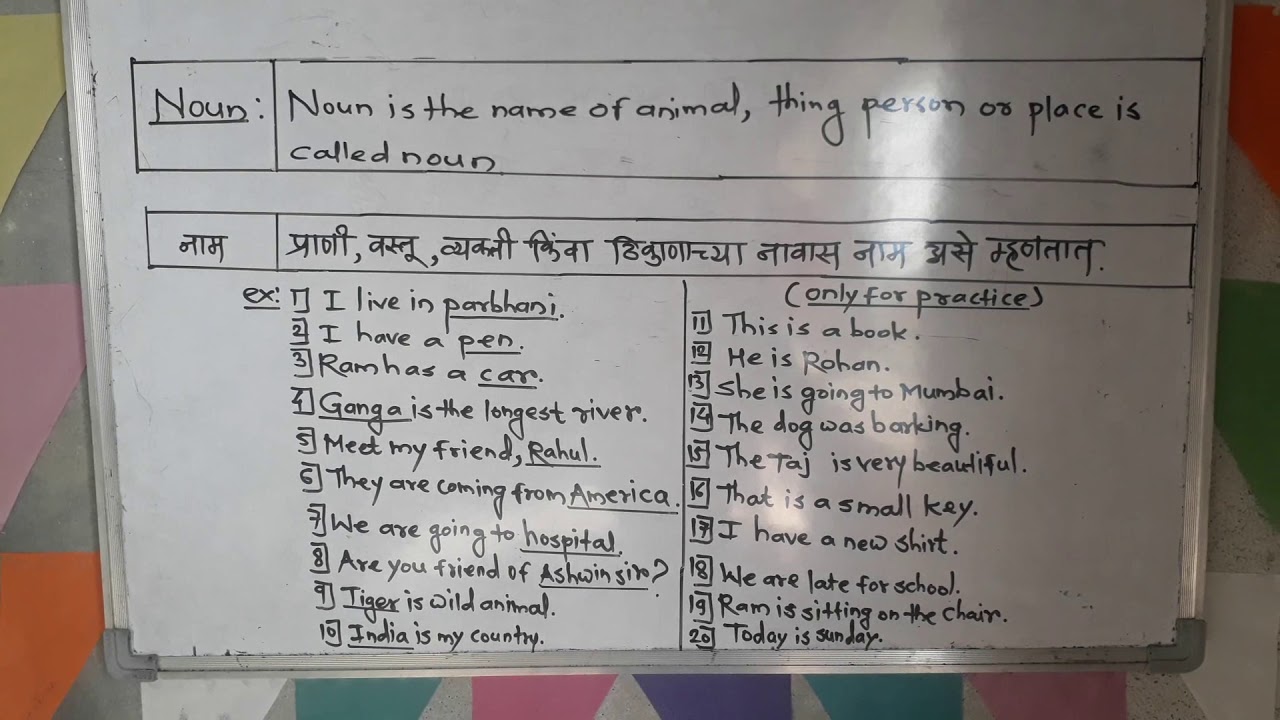 Noun: Noun is the name of animal, thing person or place is
called noun
नाम प्राणी, वस्तू, व्यक्ती किंवा ठिकाणाच्या नावास नाम असे म्हणतात.
ex: 1] I live in parbhani.
2] I have a pen.
3] Ram has a car.
4] Ganga is the longest river.
5] Meet my friend, Rahul.
6] They are coming from America.
7] We are going to hospital.
8] Are you friend of Ashwin sir?
9] Tiger is wild animal.
10] India is my country.
(only for practice)
11] This is a book.
12] He is Rohan.
13] She is going to Mumbai.
14] The dog was barking.
15] The Taj is very beautiful.
16] That is a small key.
17] I have a new shirt.
18] We are late for school.
19] Ram is sitting on the chair.
20] Today is sunday.